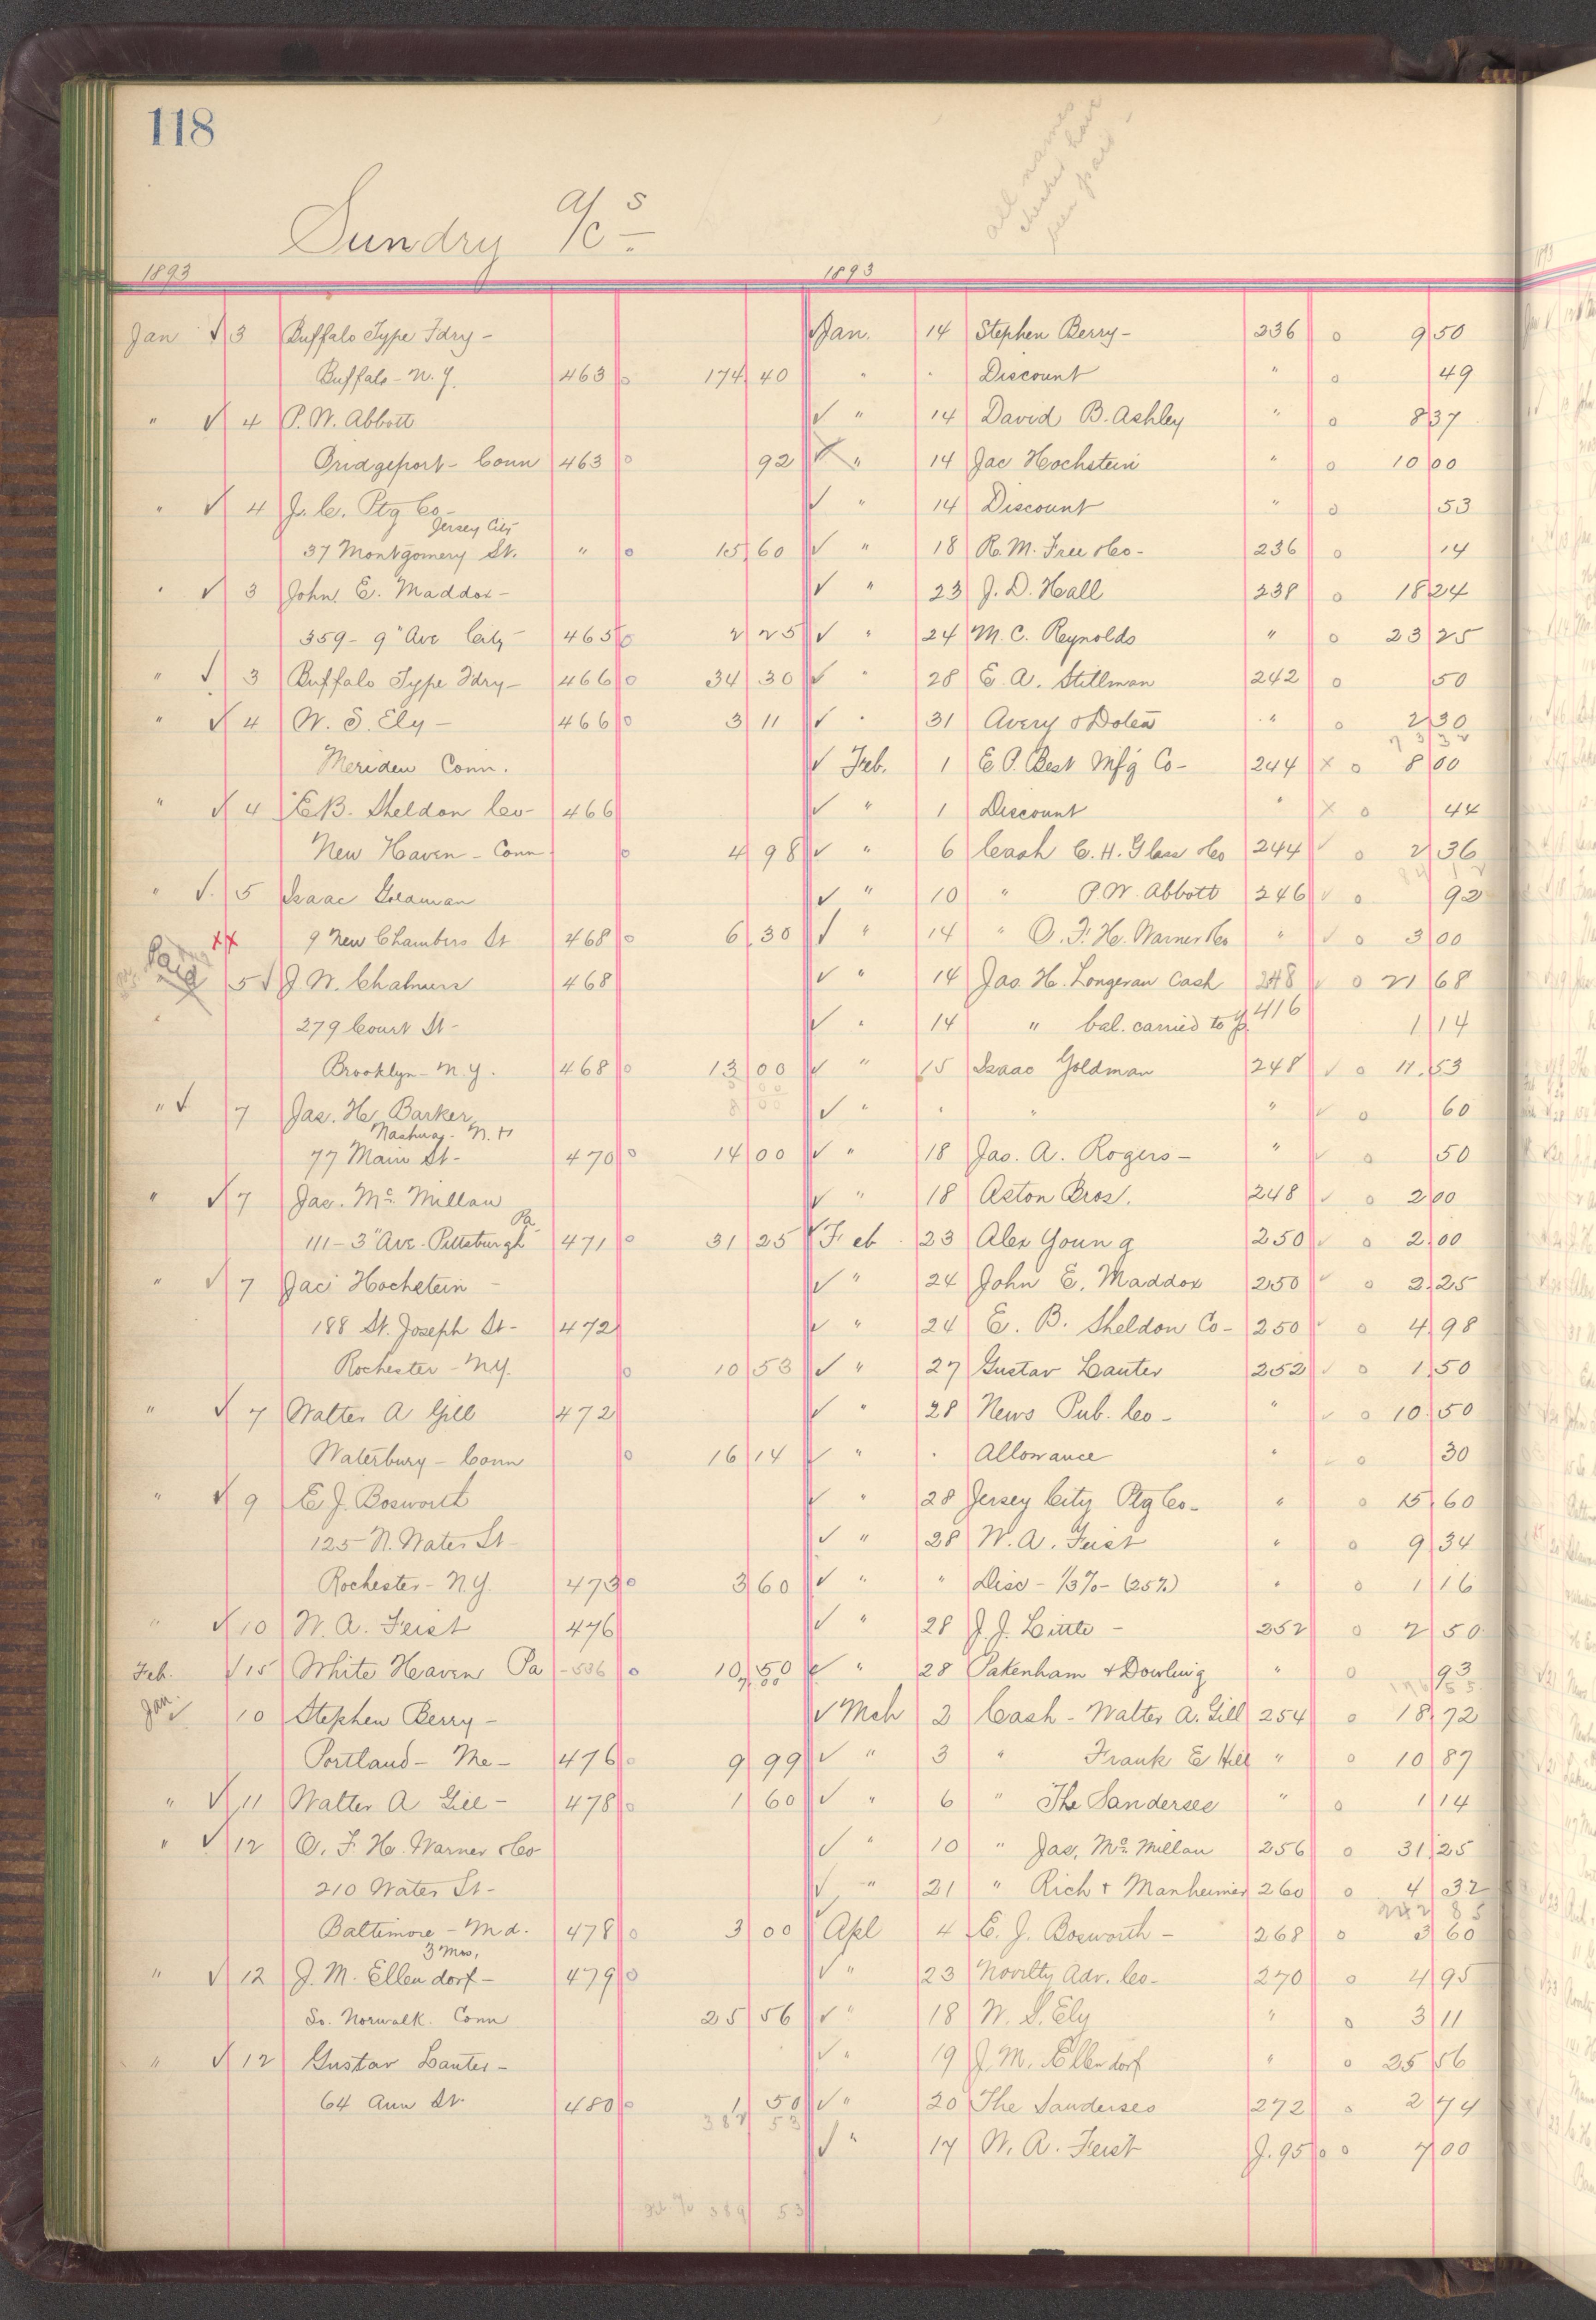 118
all names
checked have
been paid -
Sundry a/c s
1893
Jan 3 Buffalo Type Fdry -
Buffalo - N. Y. 463 0 174 40
" 4 P. W. Abbott
Bridgeport - Conn 463 0 92
" 4 J. C. Ptg Co -
Jersey City
37 Montgomery St. " 0 15 60
" 3 John E. Maddox -
359 - 9" Ave City - 465 0 2 25
" 3 Buffalo Type Fdry - 466 0 34 30
" 4 W. S. Ely - 466 0 3 11
Meriden Conn.
" 4 E. B. Sheldon Co - 466
New Haven - Conn 0 4 98
" 5 Isaac Goldman
9 New Chambers St 468 0 6 30
Paid
5 J. W. Chalmers 468
279 Court St -
Brooklyn - N. Y. 468 0 13 00
8 00
" 7 Jas. H. Barker
Nashua - N. H
77 Main St - 470 0 14 00
" 7 Jas. Mc Millan
Pa
111 - 3" Ave - Pittsburgh 471 0 31 25
" 7 Jac Hochstein -
188 St. Joseph St - 472
Rochester - N.Y. 0 10 53
" 7 Walter A Gill 472
Waterbury - Conn 0 16 14
" 9 E. J. Bosworth
125 N. Water St -
Rochester - N. Y. 473 0 3 60
" 10 W. A. Feist 476
Feb. 15 White Heaven Pa - 536 0 10 50
Jan. 10 Stephen Berry -
Portland - Me - 476 0 9 99
" 11 Walter A Gill - 478 0 1 60
" 12 O. F. H. Warner & Co
210 Water St -
Baltimore - Md. 478 0 3 00
3 Mos,
" 12 J. M. Ellendorf - 479 0
So. Norwalk. Conn 25 56
" 12 Gustav Lauter -
64 Ann St. 480 0 1 50
387 53
389 53
1893
Jan. 14 Stephen Berry - 236 0 9 50
" " Discount " 0 49
" 14 David B. Ashley " 0 8 37
" 14 Jac Hochstein " 0 10 00
" 14 Discount " 0 53
" 18 R. M. Free & Co - 236 0 14
" 23 J. D. Hall 238 0 18 24
" 24 M. C. Reynolds " 0 23 25
" 28 E. A. Stillman 242 0 50
" 31 Avery & Doten " 0 2 30
73 32
Feb. 1 E. P. Best Mfg Co - 244 X 0 8 00
" 1 Discount " X 0 44
" 6 Cash C. H. Glass & Co 244 0 2 36
" 10 " P. W. Abbott 246 0 92
" 14 " O. F. H. Warner & Co " 0 3 00
" 14 Jas. H. Longeran Cash 248 0 21 68
" 14 " bal. carried to p 416 1 14
" 15 Isaac Goldman 248 0 11 53
" " " " 0 60
" 18 Jas. A. Rogers - " 0 50
" 18 Aston Bros. 248 0 2 00
Feb 23 Alex Young 250 0 2 00
" 24 John E. Maddox 250 0 2 25
" 24 E. B. Sheldon Co - 250 0 4 98
" 27 Gustav Lauter 252 0 1 50
" 28 News Pub. Co - " 0 10 50
" " Allowance " 0 30
" 28 Jersey City Ptg Co - " 0 15 60
" 28 W. A. Feist " 0 9 34
" " Disc - 1/3 % - (25%) " 0 1 16
" 28 J. J. Little - 252 0 2 50
" 28 Pakenham & Dowling " 0 93
Mch 2 Cash - Walter A. Gill 254 0 18 72
" 3 " Frank E Hill " 0 10 87
" 6 " The Sandersee " 0 1 14
" 10 " Jas. Mc Millan 256 0 31 25
" 21 " Rich & Manheimer 260 0 4 32
Apl 4 E. J. Bosworth - 268 0 3 60
" 23 Novelty Adv. Co - 270 0 4 95
" 18 W. S. Ely " 0 3 11
" 19 J. M. Ellendorf " 0 25 56
" 20 The Sanderses 272 0 2 74
" 17 W. A. Feist J. 95 0 0 7 00